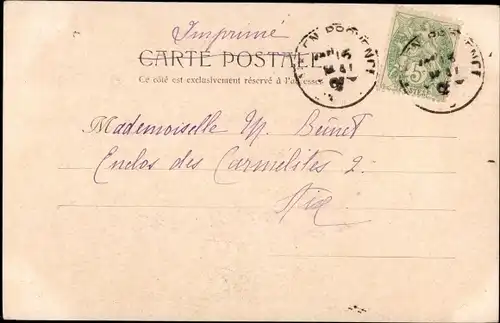 Imprimé
CARTE POSTALE
Ce côté est exclusivement réservé à l'adresse
EN PROVENCE
EN PROVENCE
5
Mademoiselle M. Brunet
Enclos des Carmélites 2.
Aix